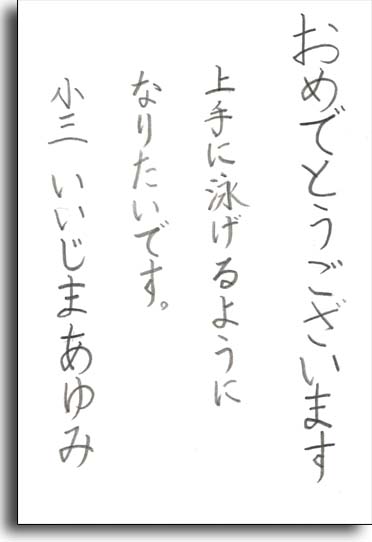 おめでとうございます
上手に泳げるように
なりたいです。
小三 いいじまあゆみ